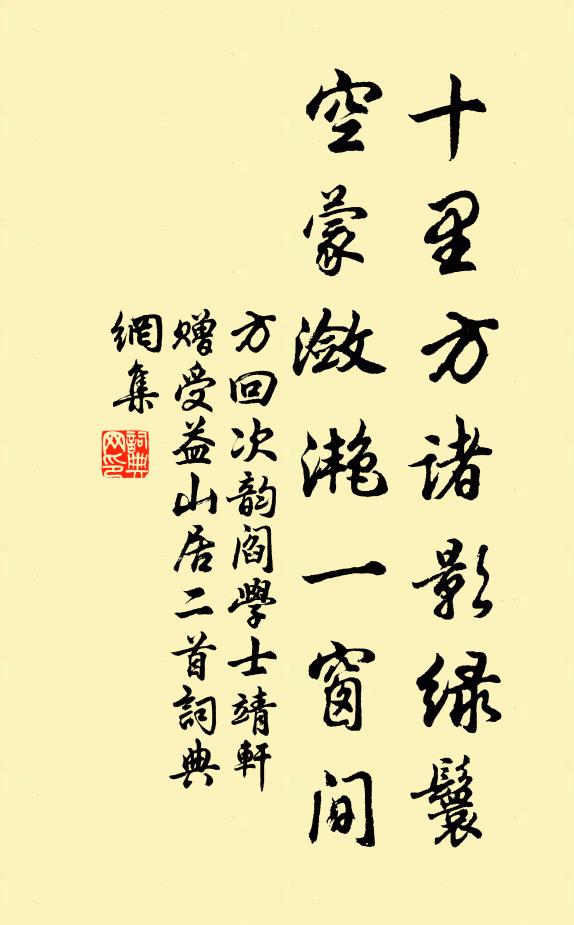 十里方诸影绿鬟
空蒙潋滟一窗间
方回次韵阎學士靖軒
赠受益山居二首詞典
網集
詞典网印